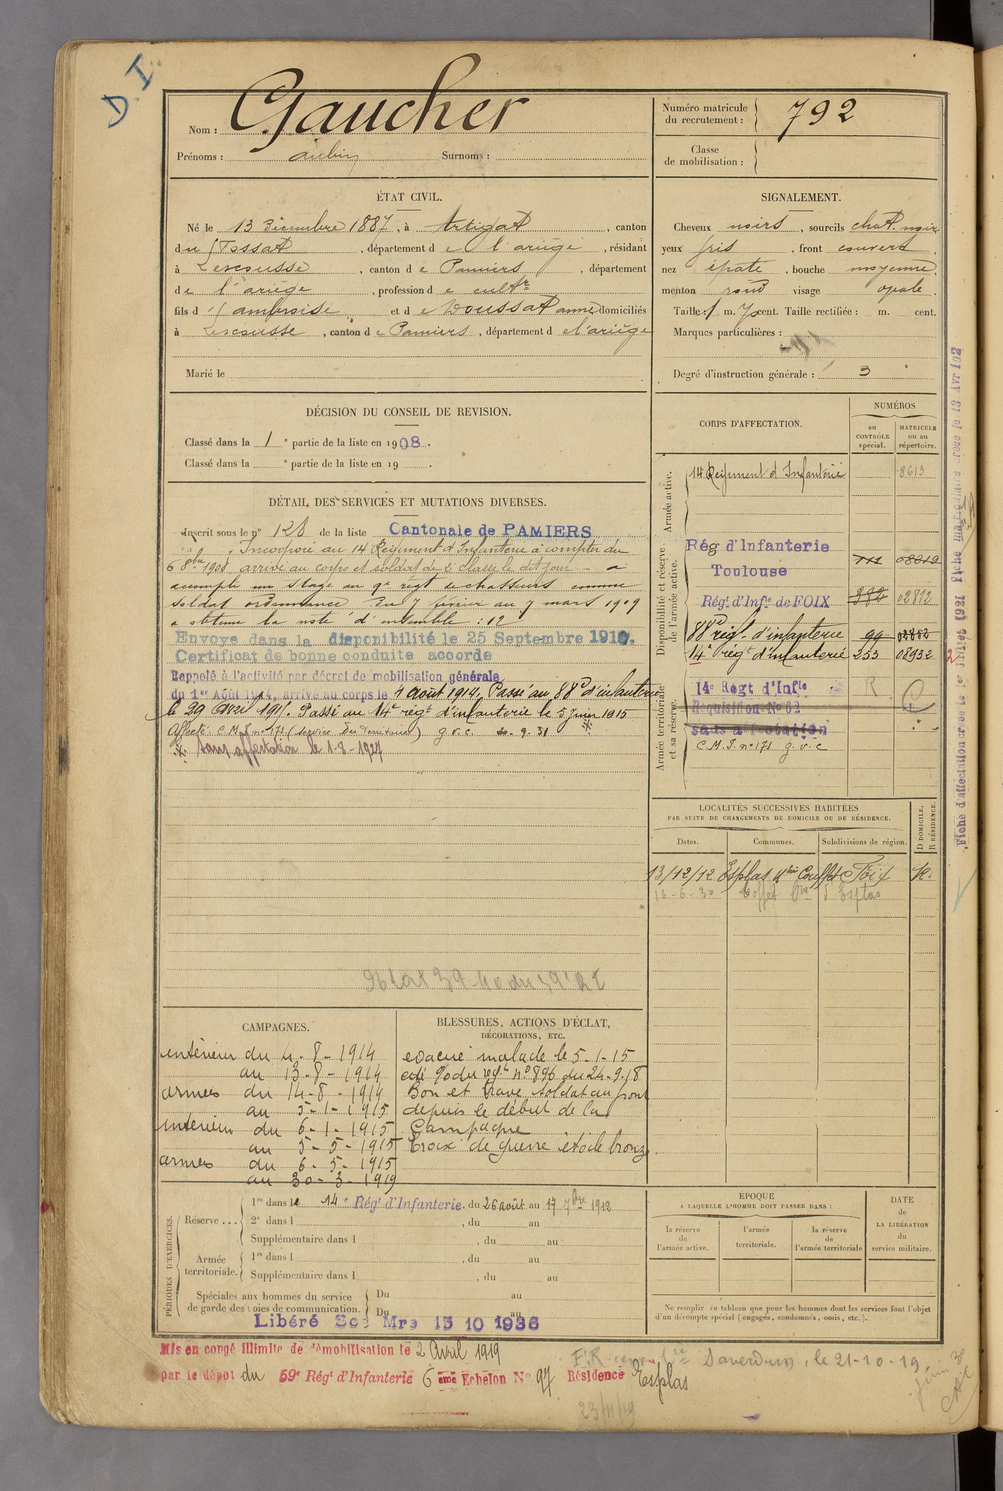 D.I.
Nom : Gaucher
Prénoms : aubin Surnoms :
Numéro matricule du recrutement : 792
Classe de mobilisation :
ÉTAT CIVIL.
Né le 13 Décembre 1887, à Artigat, canton
du Fossat, département de l'ariège, résidant
à Lescousse, canton de Pamiers, département
de l'ariège, profession de cultr
fils d' ambroise et de Doussat anne domiciliés
à Lescousse, canton de Pamiers, département de l'ariège
Marié le
SIGNALEMENT.
Cheveux noirs, sourcils chat. noir
yeux gris, front couvert
nez épaté, bouche moyenne
menton rond visage ovale.
Taille : 1 m. cent. Taille rectifiée : m. cent.
Marques particulières :
Degré d'instruction générale : 3
DÉCISION DU CONSEIL DE REVISION.
Classé dans la 1e partie de la liste en 1908.
Classé dans la e partie de la liste en 19 .
DÉTAIL DES SERVICES ET MUTATIONS DIVERSES.
Inscrit sous le n° 128 de la liste Cantonale de PAMIERS
Incorporé au 14 Régiment d'Infanterie à compter du
6 8bre 1908, arrivé au corps et soldat de 2 classe le dit jour – a
accompli un stage au 9e régt de chasseurs comme
soldat ordonnance, Du 7 février au 7 mars 1909
a obtenu la note d'ensemble : 12
Envoyé dans la disponibilité le 25 Septembre 1910.
Certificat de bonne conduite accordé
Rappelé à l'activité par décret de mobilisation générale
du 1er Août 1914, arrivé au corps le 4 août 1914. Passé au 88e d'infanterie
le 29 Avril 1915. Passé au 14e régt d'infanterie le 5 Juin 1915
Affecté C.M.I. n° 171 (Service Des Territoires) g.v.c.
Sans affectation le 1-8-1927
CORPS D'AFFECTATION.
NUMÉROS
au CONTRÔLE spécial.
MATRICULE ou au répertoire.
Armée active.
14 Régiment d'Infanterie 8613
Disponibilité et réserve de l'armée active.
Rég d'Infanterie
Toulouse
Régt d'Infie de FOIX 02812
88e régt d'infanterie 99
14e régt d'infanterie 253 08932
Armée territoriale et sa réserve.
14e Regt d'Infie R
Réquisition No 62
sans affectation
C.M.I. n° 171 g.v.c
LOCALITÉS SUCCESSIVES HABITÉES
PAR SUITE DE CHANGEMENTS DE DOMICILE OU DE RÉSIDENCE.
Dates. Communes. Subdivisions de région. D DOMICILE. R RÉSIDENCE.
13/12/12 Esplas Foix R.
16-6-30 Esplas
CAMPAGNES.
intérieur du 4-8-1914
au 13-8-1914
armées du 14-8-1914
au 5-1-1915
intérieur du 6-1-1915
au 5-5-1915
armées du 6-5-1915
au 30-3-1919
BLESSURES, ACTIONS D'ÉCLAT, DÉCORATIONS, ETC.
évacué malade le 5-1-15
cité o du régt n° 896 du 24-9-18
Bon et brave soldat au front
depuis le début de la
Campagne
Croix de guerre étoile bronze
PÉRIODES D'EXERCICES.
Réserve ...
1re dans le 14e Régt d'Infanterie, du 26 août au 17 7bre 1912
2e dans l , du au
Supplémentaire dans l , du au
Armée territoriale.
1re dans l , du au
Supplémentaire dans l , du au
Spéciales aux hommes du service de garde des voies de communication.
Du au
Du au
Libéré Sce Mre 15 10 1936
EPOQUE
A LAQUELLE L'HOMME DOIT PASSER DANS :
la réserve de l'armée active.
l'armée territoriale.
la réserve de l'armée territoriale
DATE de LA LIBÉRATION du service militaire.
Ne remplir ce tableau que pour les hommes dont les services font l'objet
d'un décompte spécial (engagés, condamnés, omis, etc.).
Mis en congé illimité de démobilisation le 2 Avril 1919
par le dépôt du 59e Régt d'Infanterie 6ème Echelon No 97 Résidence Esplas
Saverdun, le 21-10-19
23/11/19